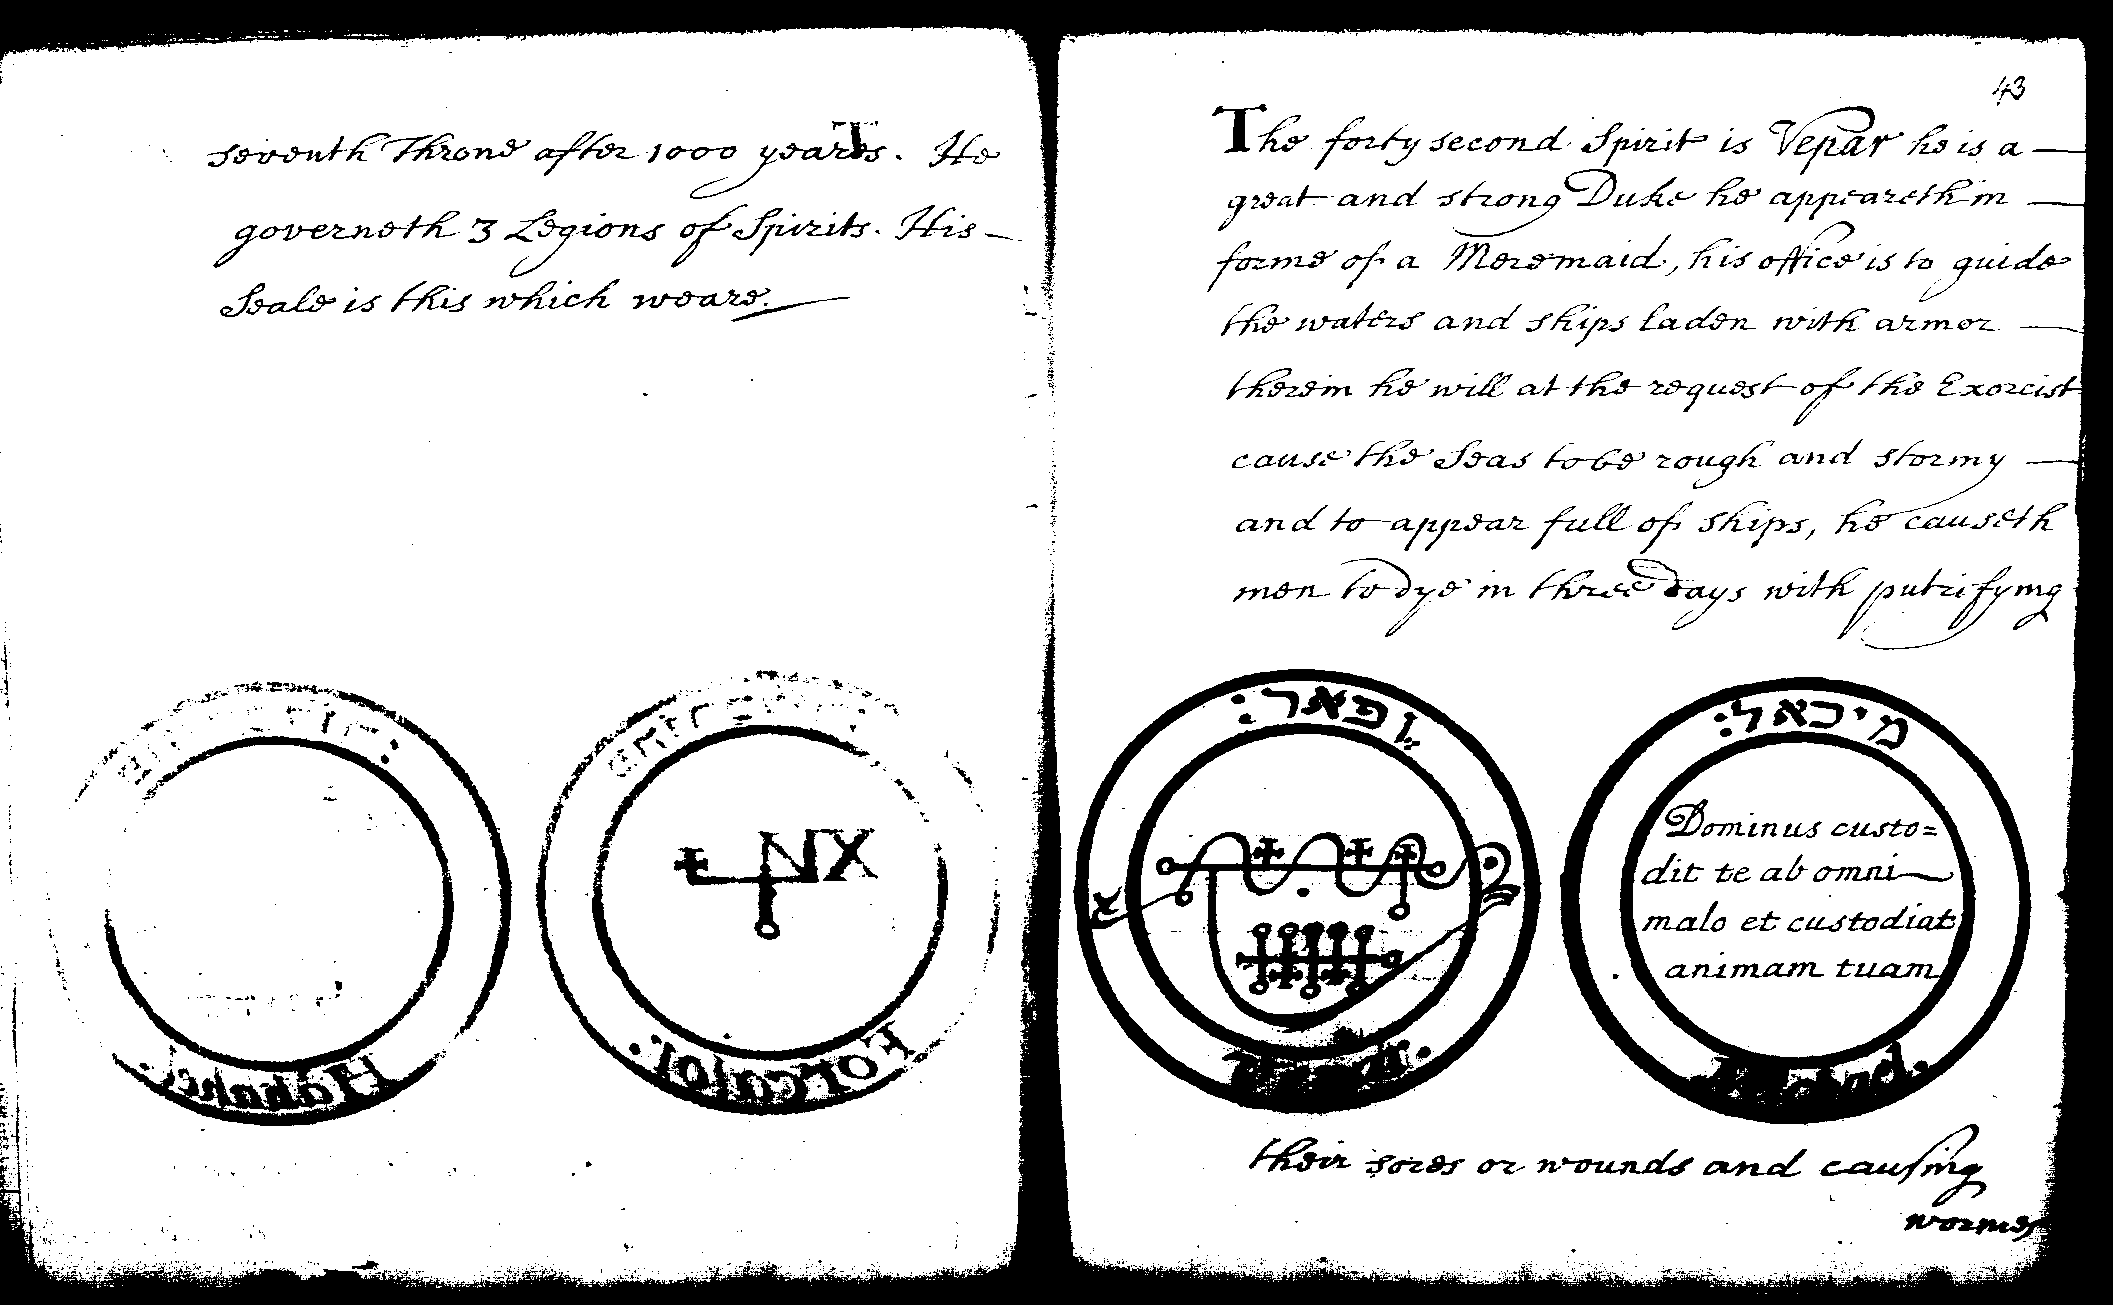 seventh Throne after 1000 yeares. He
governeth 3 Legions of Spirits. His
Seale is this which weare.
43
The forty second Spirit is Vepar he is a
great and strong Duke he appeareth in
forme of a Meremaid, his office is to guide
the waters and ships laden with armor
therein he will at the request of the Exorcist
cause the Seas to be rough and stormy
and to appear full of ships, he causeth
men to dye in three days with putrifying
ופאר:
מיכאל:
Dominus custo=
dit te ab omni
malo et custodiat
animam tuam
their sores or wounds and causing
wormes